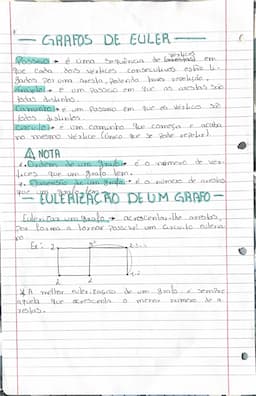 GRAFOS DE EULER
Passeio → é uma sequência de vértices em
que cada dois vértices consecutivos estão li-
gados por uma aresta, podendo haver repetição.
Trajeto → é um passeio em que as arestas são
todas distintas.
Caminho → é um passeio em que os vértices são
todos distintos
Circuito → é um caminho que começa e acaba
no mesmo vértice (único que se pode repetir)
NOTA
Ordem de um grafo → é o número de vér-
tices que um grafo tem.
Dimensão de um grafo → é o número de arestas
que um grafo tem.
EULERIZAÇÃO DE UM GRAFO
Eulerizar um grafo → acrescentar-lhe arestas,
por forma a tornar possível um circuito euleria
no
Ex:
* A melhor eulerização de um grafo é sempre
aquela que acrescenta o menor número de a
restas.